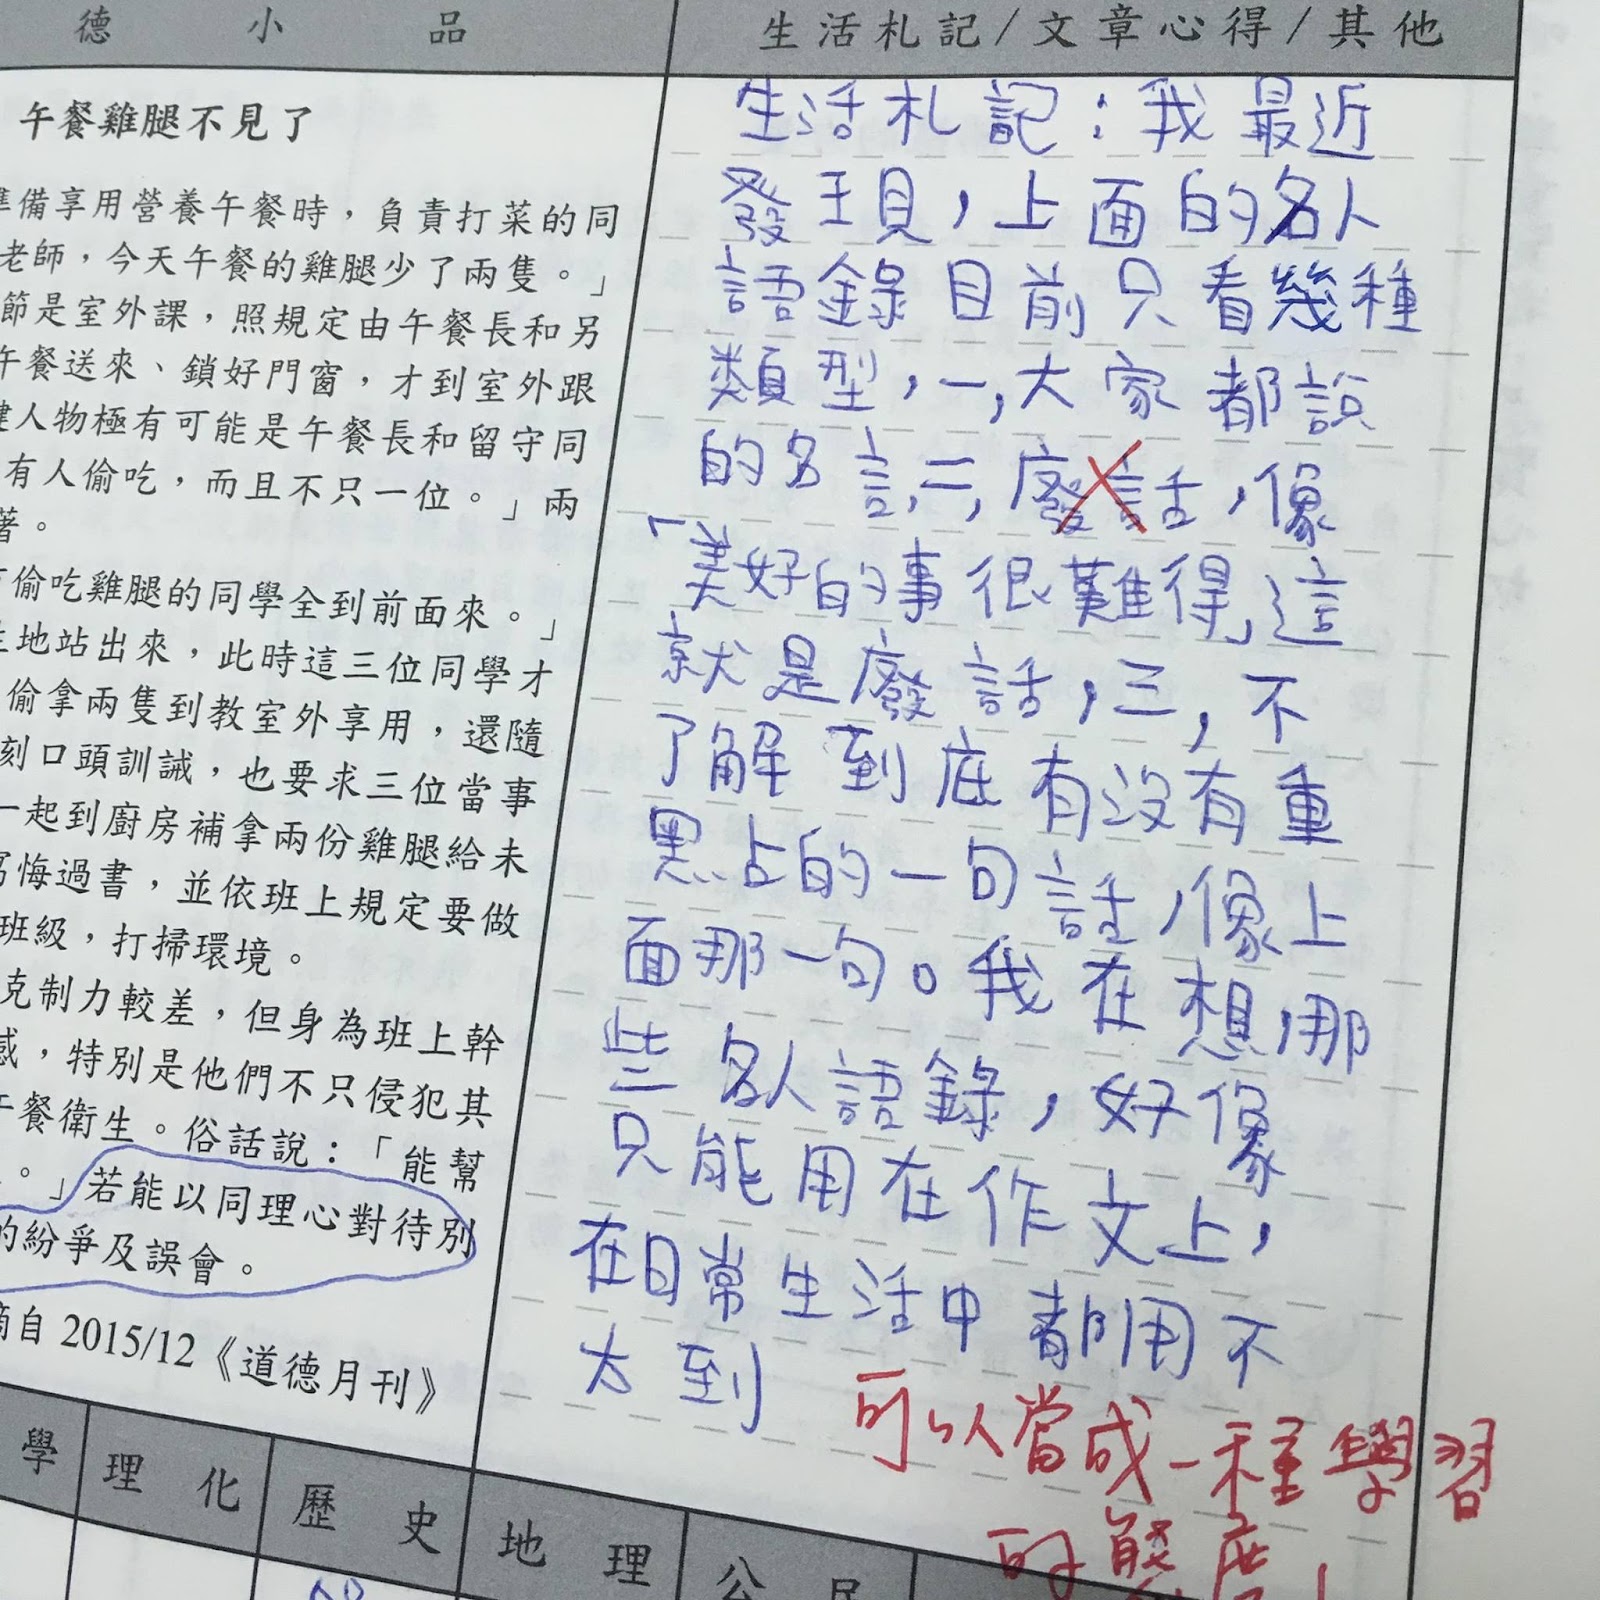 德 小 品
午餐雞腿不見了
準備享用營養午餐時，負責打菜的同
老師，今天午餐的雞腿少了兩隻。」
節是室外課，照規定由午餐長和另
午餐送來、鎖好門窗，才到室外跟
鍵人物極有可能是午餐長和留守同
有人偷吃，而且不只一位。」兩
著。
偷吃雞腿的同學全到前面來。」
地站出來，此時這三位同學才
偷拿兩隻到教室外享用，還隨
刻口頭訓誡，也要求三位當事
一起到廚房補拿兩份雞腿給未
寫悔過書，並依班上規定要做
班級，打掃環境。
克制力較差，但身為班上幹
感，特別是他們不只侵犯其
午餐衛生。俗話說：「能幫
。」若能以同理心對待別
的紛爭及誤會。
摘自 2015/12《道德月刊》
生活札記/文章心得/其他
生活札記：我最近
發現，上面的名人
語錄目前只看幾種
類型，一，大家都說
的名言，二，廢話，像
「美好的事很難得」這
就是廢話，三，不
了解到底有沒有重
點的一句話，像上
面那一句。我在想，那
些名人語錄，好像
只能用在作文上，
在日常生活中都用不
太到
可以當成一種學習
的態度！
學 理 化 歷 史 地 理 公 民